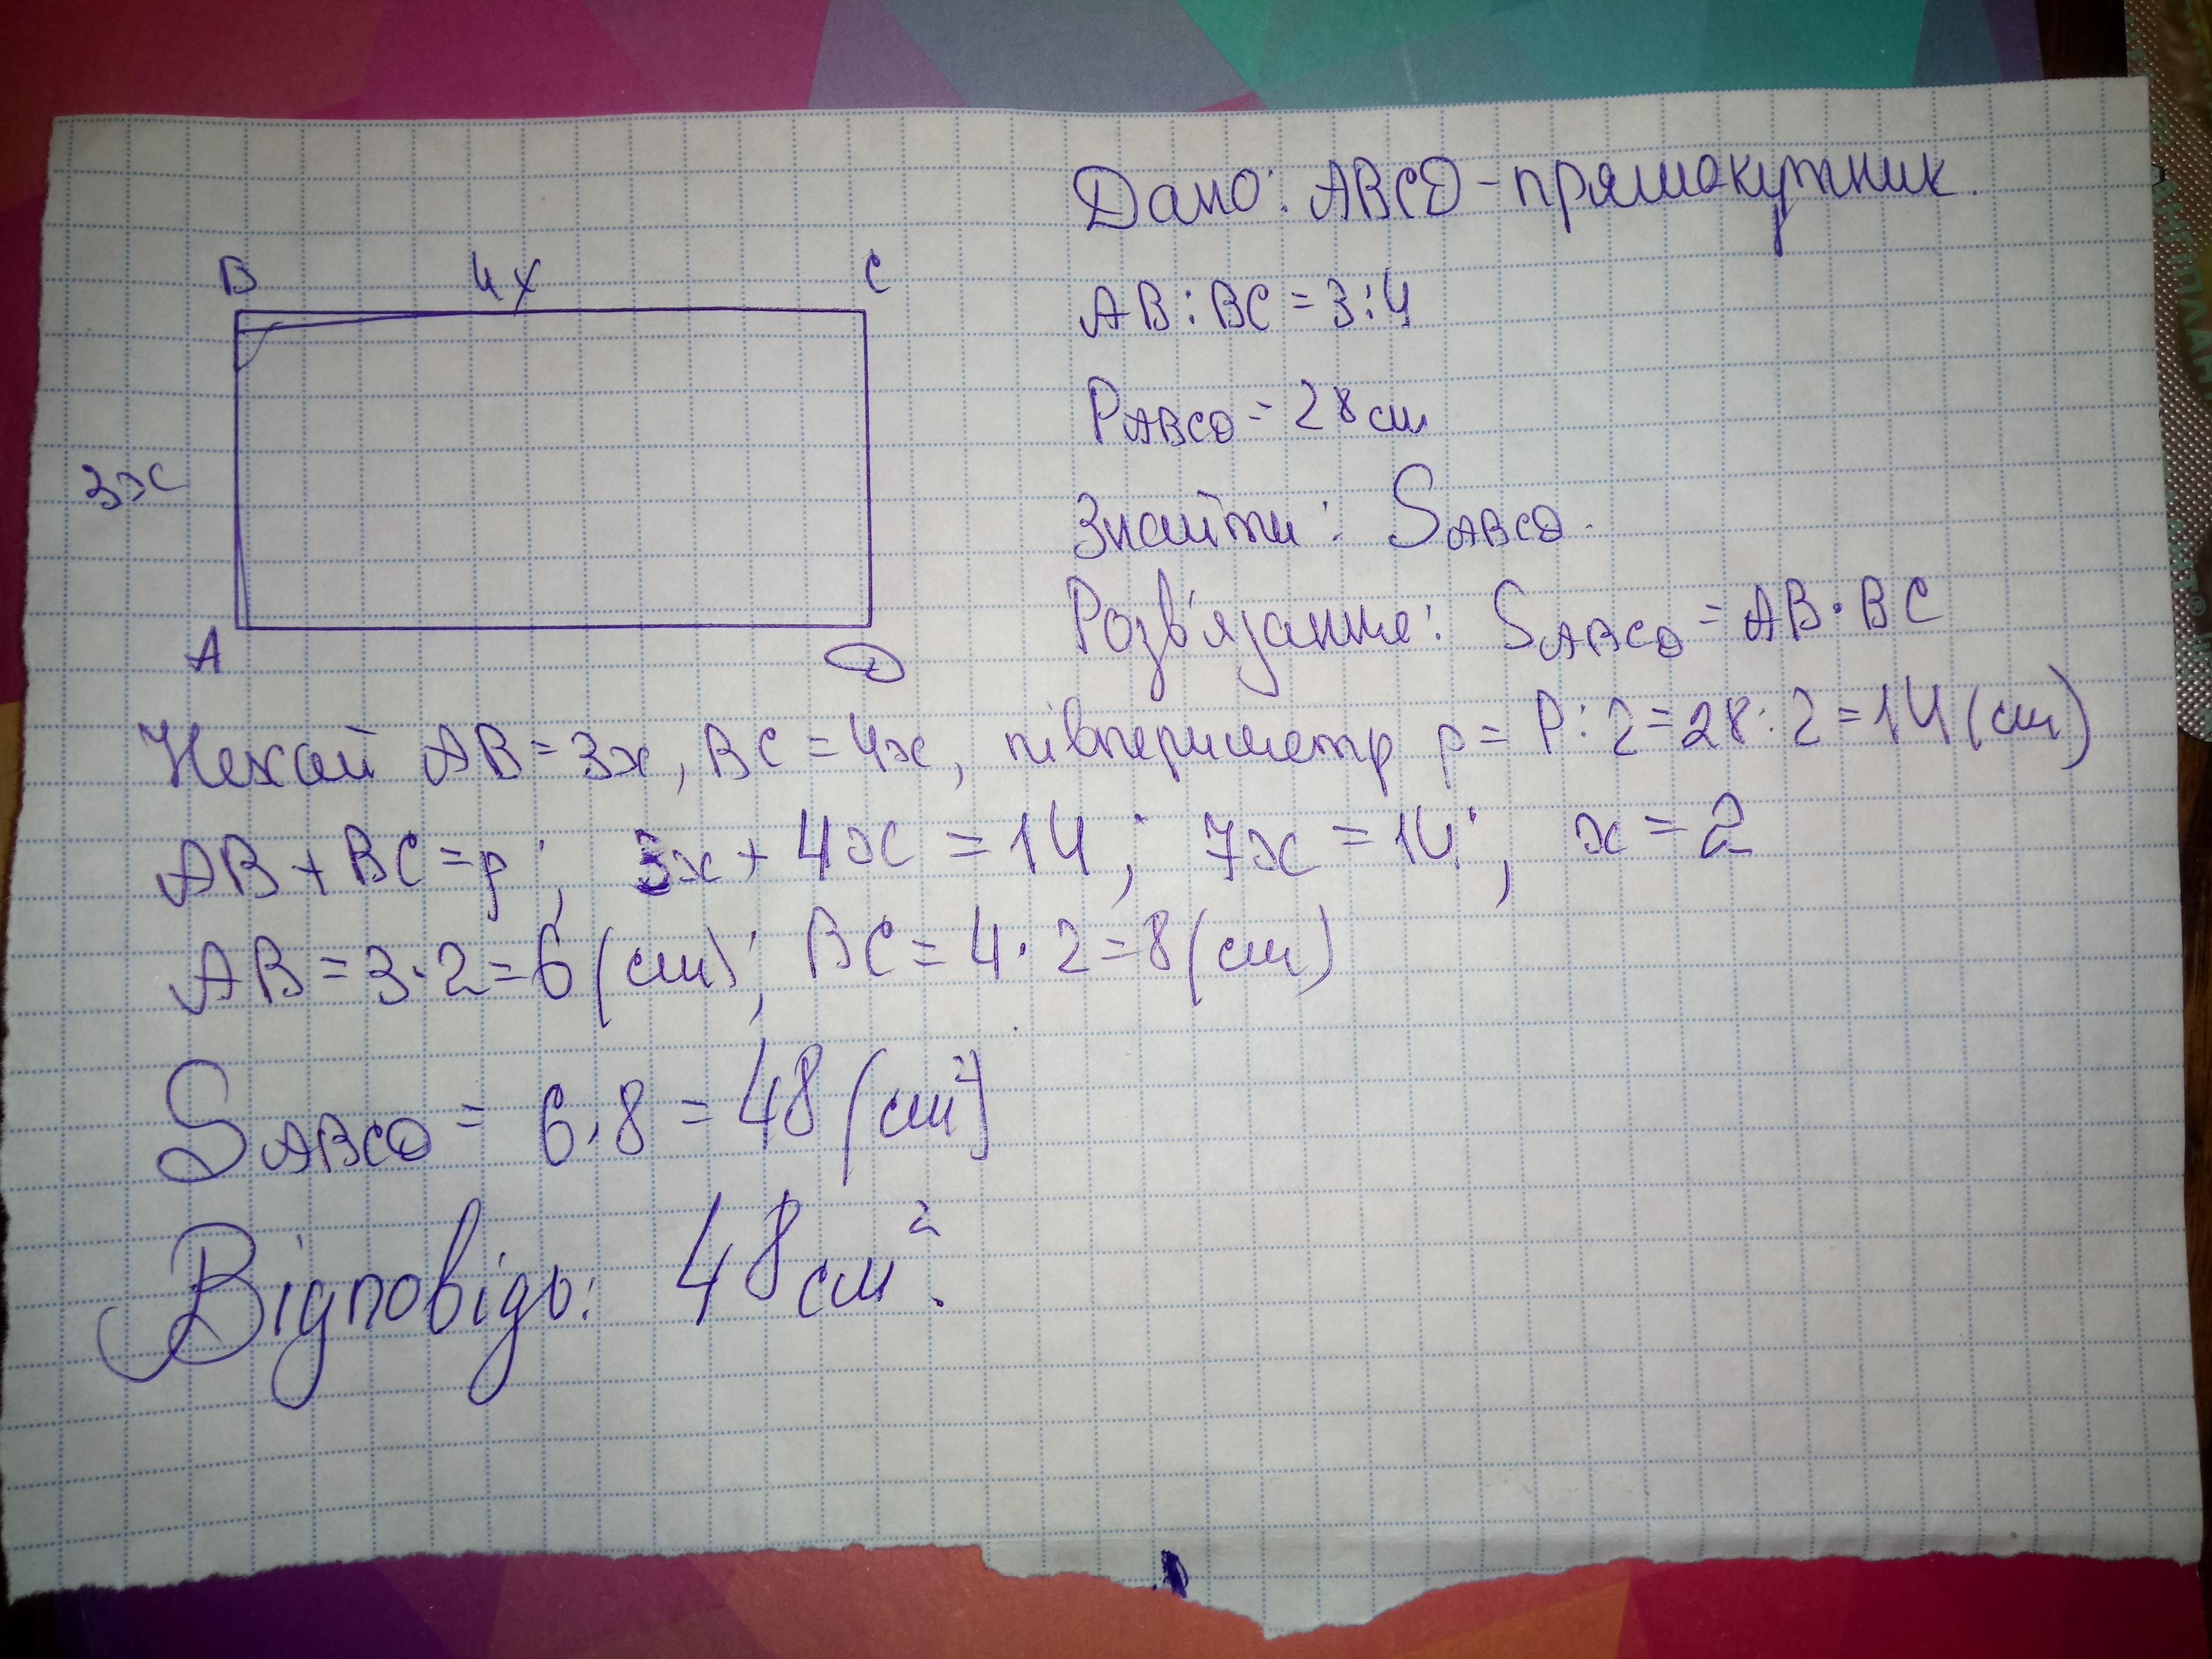 Дано: ABCD - прямокутник.
B 4x C
AB : BC = 3 : 4
P ABCD = 28 см
3x
Знайти: S ABCD.
Розв'язання: S ABCD = AB · BC
A D
Нехай AB = 3x, BC = 4x, півпериметр p = P : 2 = 28 : 2 = 14 (см)
AB + BC = p; 3x + 4x = 14; 7x = 14; x = 2
AB = 3 · 2 = 6 (см); BC = 4 · 2 = 8 (см)
S ABCD = 6 · 8 = 48 (см²)
Відповідь: 48 см².